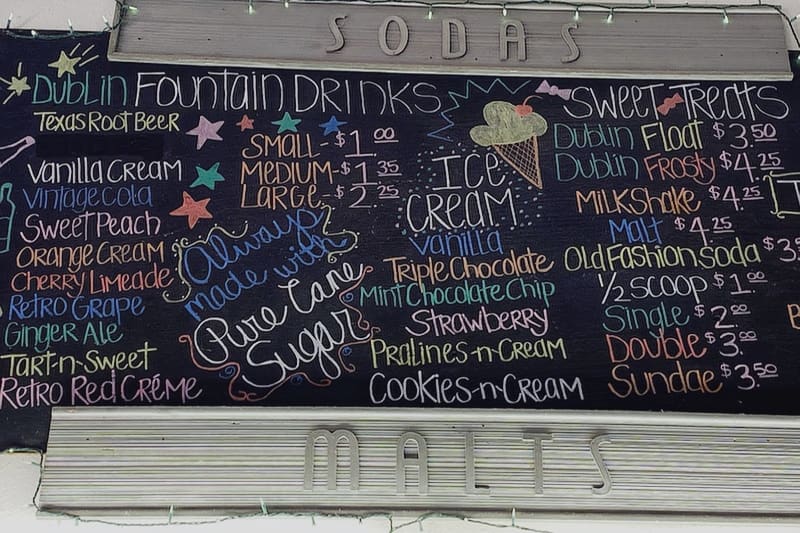 SODAS
Dublin Fountain Drinks
Texas Root Beer
Vanilla Cream
Vintage Cola
Sweet Peach
Orange Cream
Cherry Limeade
Retro Grape
Ginger Ale
Tart-n-Sweet
Retro Red Créme
Small - $1.00
Medium - $1.35
Large - $2.25
Always
made with
Pure Cane
Sugar
ICE
CREAM
Vanilla
Triple Chocolate
Mint Chocolate Chip
Strawberry
Pralines-n-Cream
Cookies-n-Cream
Sweet Treats
Dublin Float $3.50
Dublin Frosty $4.25
Milkshake $4.25
Malt $4.25
Old Fashion Soda $3
1/2 Scoop $1.00
Single $2.00
Double $3.00
Sundae $3.50
MALTS